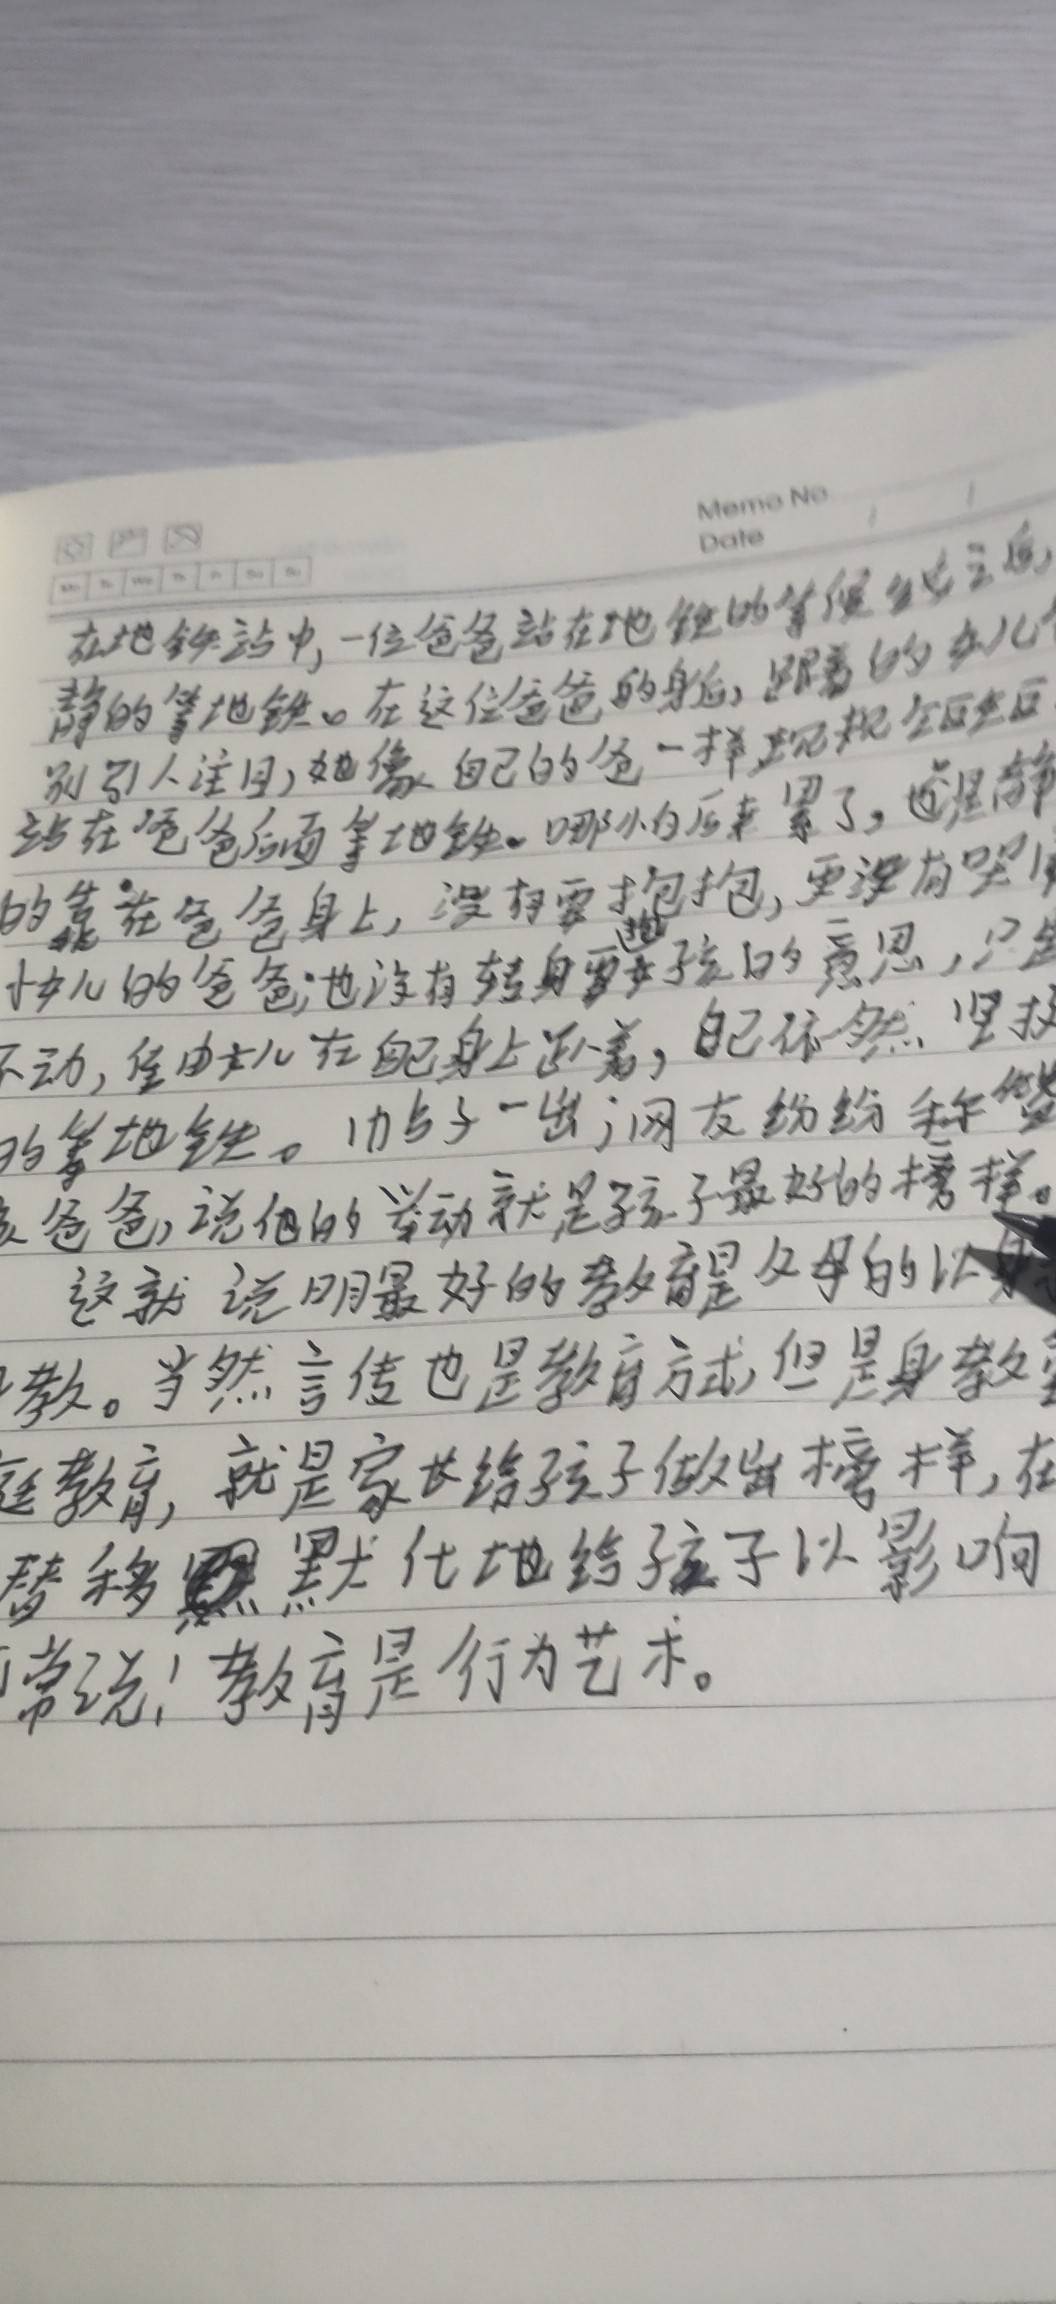 Memo No
Date
在地铁站中,一位爸爸站在地铁的等候
静的等地铁。在这位爸爸的身后,跟着的女儿
别引人注目,她像自己的爸一样规规矩矩
站在爸爸后面等地铁。哪小的后来累了,也是静
的靠在爸爸身上,没有要抱抱,更没有哭
小女儿的爸爸;也没有转身要抱孩的意思,只是
不动,任由女儿在自己身上趴着,自己依然坚持
的等地铁。一出;网友纷纷称赞
爸爸,说他的举动就是孩子最好的榜样。
这就说明最好的教育是父母的以身
教。当然言传也是教育方式,但是身教
庭教育,就是家长给孩子做出榜样,在
移默化地给孩子以影响
常说!教育是行为艺术。